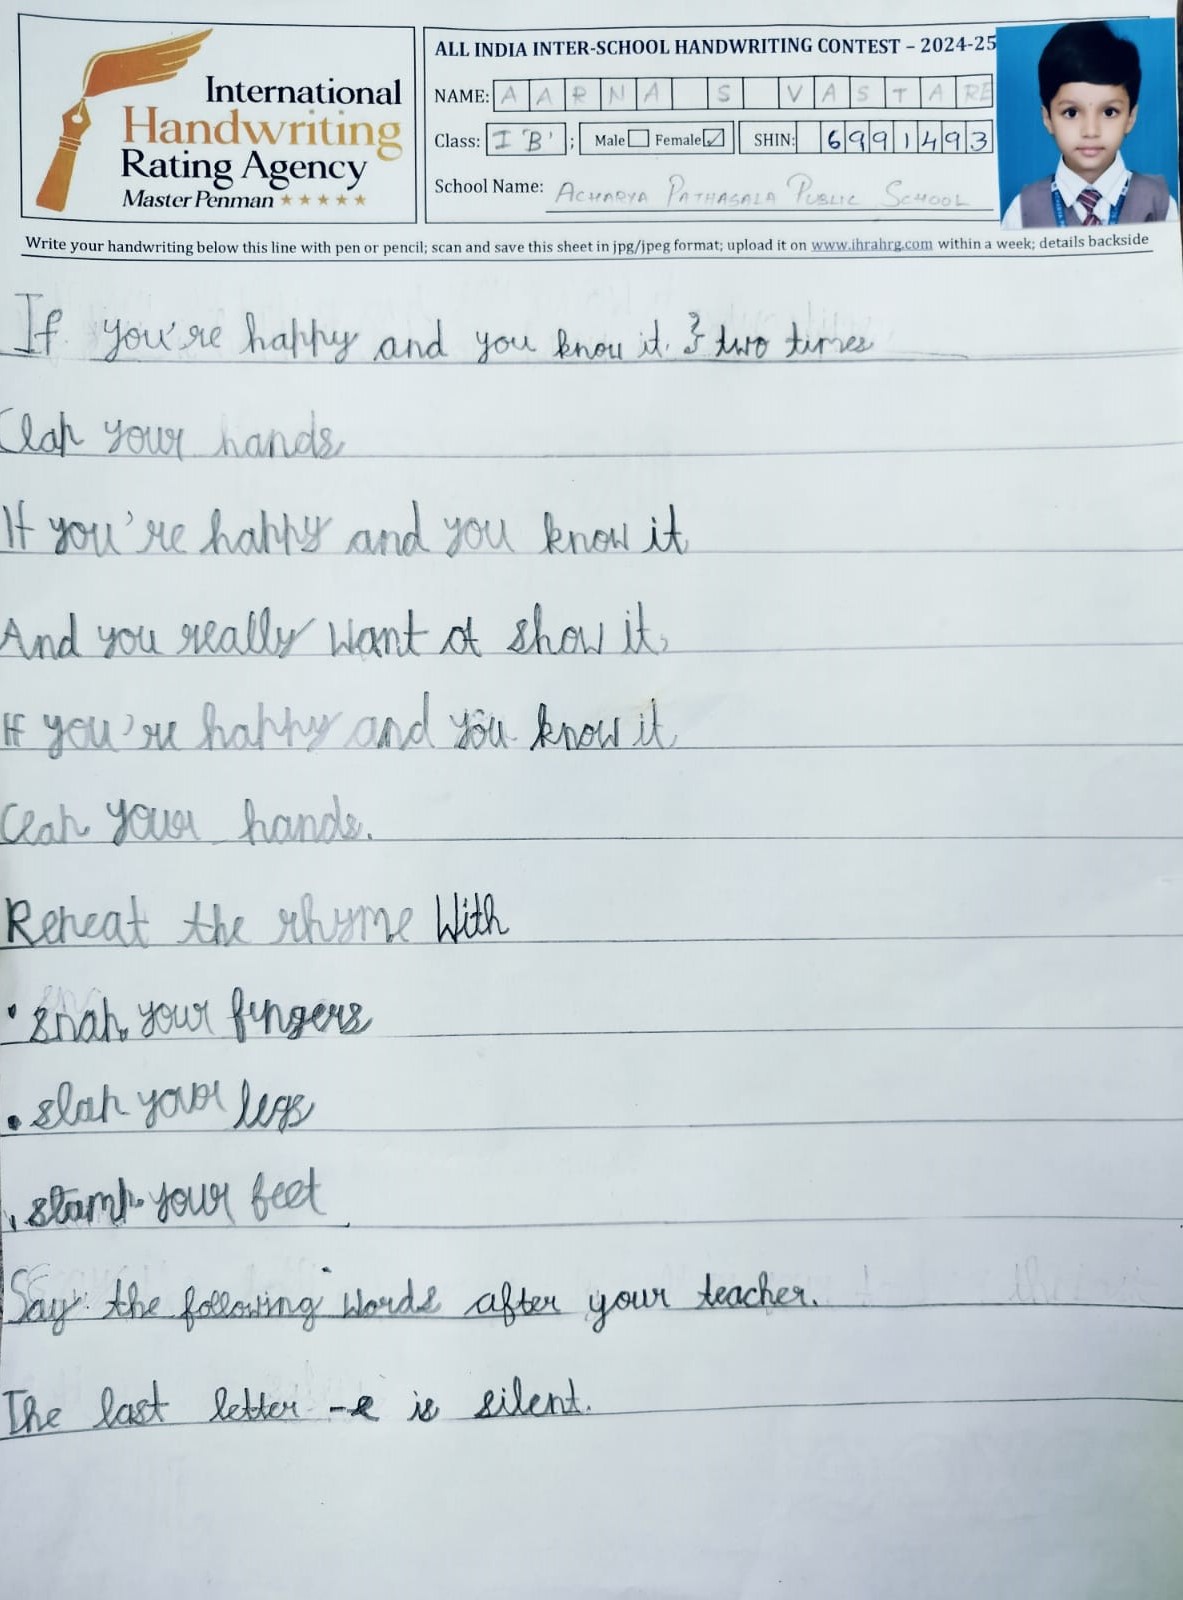 International
Handwriting
Rating Agency
Master Penman ★★★★★
ALL INDIA INTER-SCHOOL HANDWRITING CONTEST – 2024-25
NAME: AARNA S VASTARE
Class: I 'B' ; Male Female ✓ SHIN: 6991493
School Name: ACHARYA PATHASALA PUBLIC SCHOOL
Write your handwriting below this line with pen or pencil; scan and save this sheet in jpg/jpeg format; upload it on www.ihrahrg.com within a week; details backside
If you're happy and you know it. } two times
Clap your hands
If you're happy and you know it
And you really want ot show it,
If you're happy and you know it
Clap your hands.
Repeat the rhyme With
• snap your fingers
• slap your legs
. stamp your feet
Say the following words after your teacher.
The last letter -e is silent.